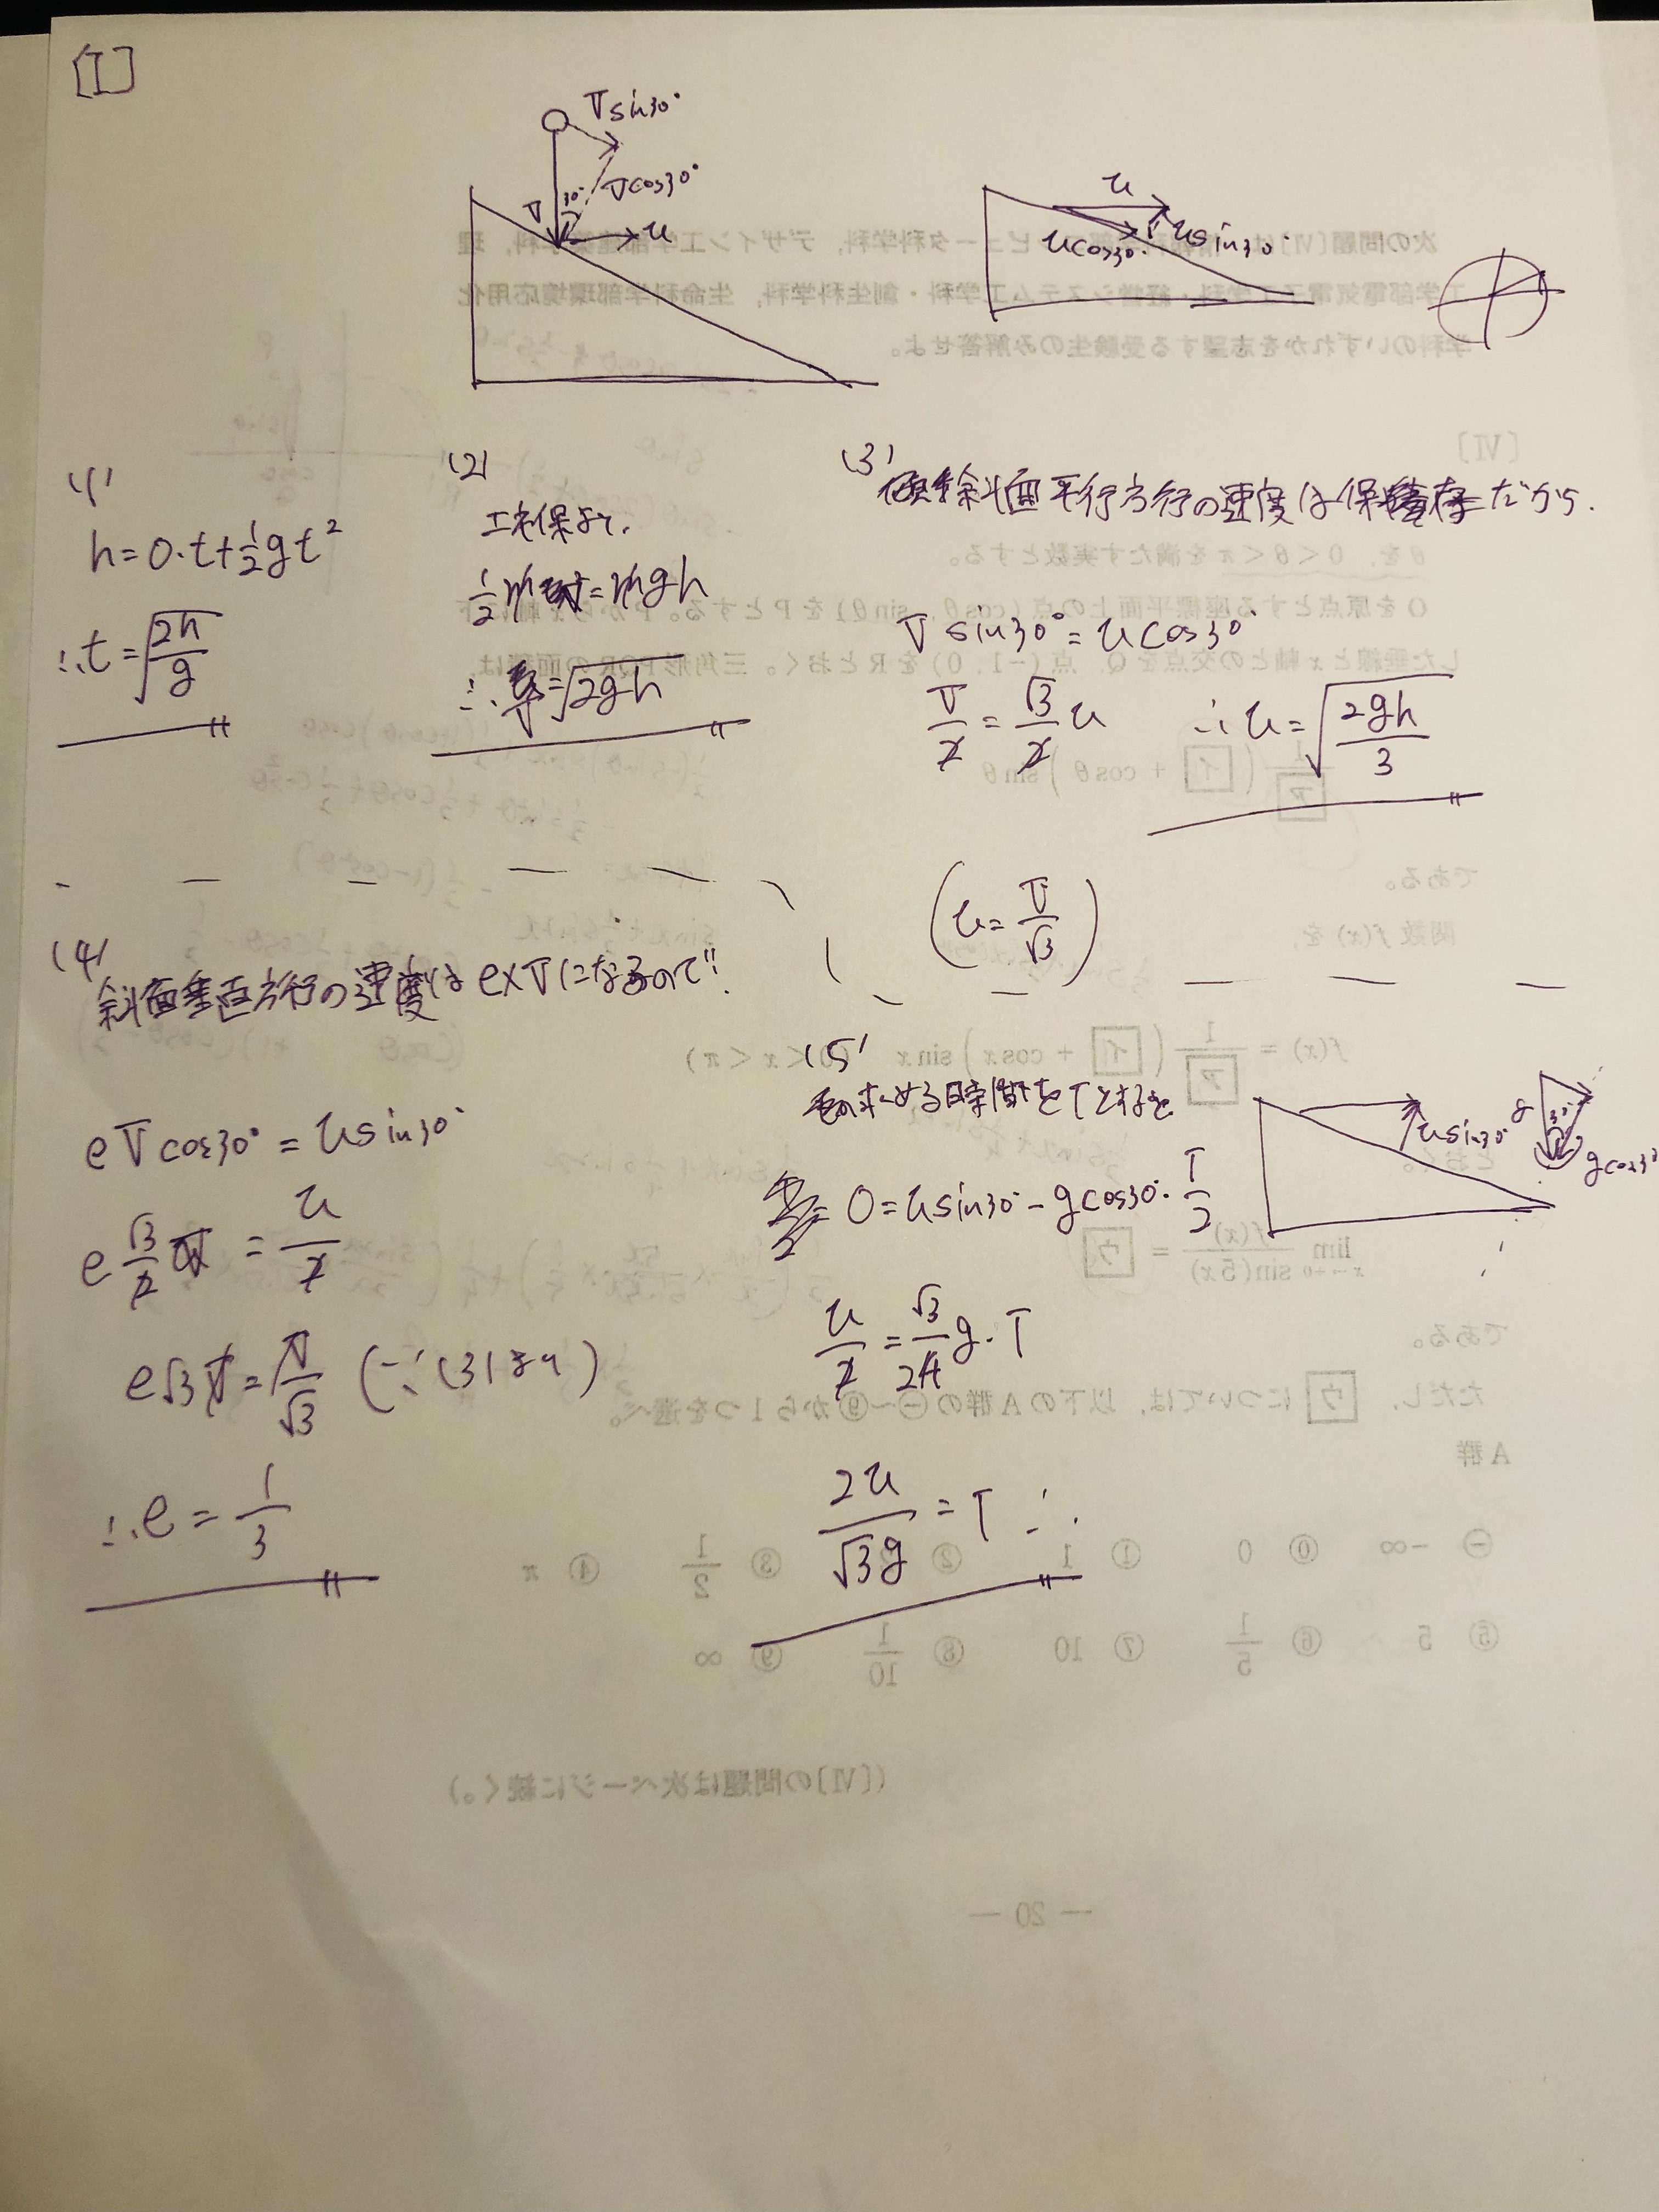 [I]
Vsin30°
30°
Vcos30°
V
u
u
ucos30°
usin30°
(1)
h=0・t+½gt²
∴t=√(2h/g)
(2)
エネ保より、
½mV²=mgh
∴V=√2gh
(3)
斜面平行方行の速度は保存だから、
Vsin30°=ucos30°
V/2=√3/2 u ∴u=√(2gh/3)
(u=V/√3)
(4)
斜面垂直方行の速度はe×Vになるので
eVcos30°=usin30°
e√3/2 V=u/2
e√3V=V/√3 (∵(3)より)
∴e=1/3
(5)
求める時間をTとすると
0=usin30°-gcos30°・T/2
u/2=√3/4 g・T
2u/√3g=T∴
usin30°
g
30°
gcos30°
次の問題〔VI〕は、情報科学部コンピュータ科学科、デザイン工学部建築学科、理
工学部電気電子工学科・経営システム工学科・創生科学科、生命科学部環境応用化
学科のいずれかを志望する受験生のみ解答せよ。
〔VI〕
θを、0<θ<πを満たす実数とする。
Oを原点とする座標平面上の点(cosθ, sinθ)をPとする。Pからx軸に下
した垂線とx軸との交点をQ、点(-1, 0)をRとおく。三角形PQRの面積は、
1/ア (イ + cosθ) sinθ
である。
関数f(x)を、
f(x) = 1/ア (イ + cos x) sin x (0<x<π)
とおく。
lim x→+0 f(x)/sin(5x) = ウ
である。
ただし、ウについては、以下のA群の⊖~⑨から1つを選べ。
A群
⊖ -∞ ⓪ 0 ① 1 ② ③ 1/2 ④ π
⑤ 5 ⑥ 1/5 ⑦ 10 ⑧ 1/10 ⑨ ∞
(〔VI〕の問題は次ページに続く。)
— 20 —